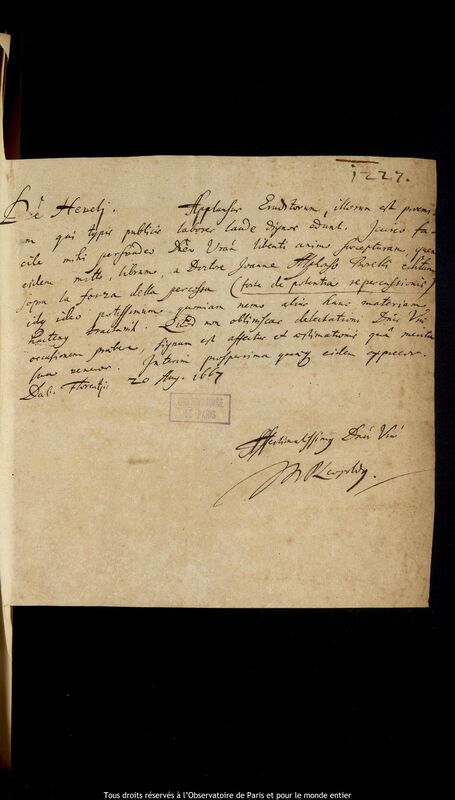 1227.
Dne Hevelj. Applausus Eruditorum, illorum est præmi-
um qui typis publicis labores laude dignos edunt. Jcirco fa-
cile mihi persuadeo Dnem Vram libenti animo suscepturam, quem
eidem mitto, librum, a Doctore Joanne Alfonso Borelli editum
sopra la forza della percossa (forte de potentia repercussionis)
idq ideo potissimum, quoniam nemo alius hanc materiam
hucusq tractavit. Quod non obliviscar delectationi Dnis Vræ
occasionem præbere, signum est affectus et æstimationis quâ merita
sua veneror. Interim prosperrima quæq eidem apprecor.
Dab. Florentiæ 20 Aug. 1667
OBSERVATOIRE
DE PARIS
Affectionatissimus Dnis Vræ
Leopoldus.
Tous droits réservés à l'Observatoire de Paris et pour le monde entier